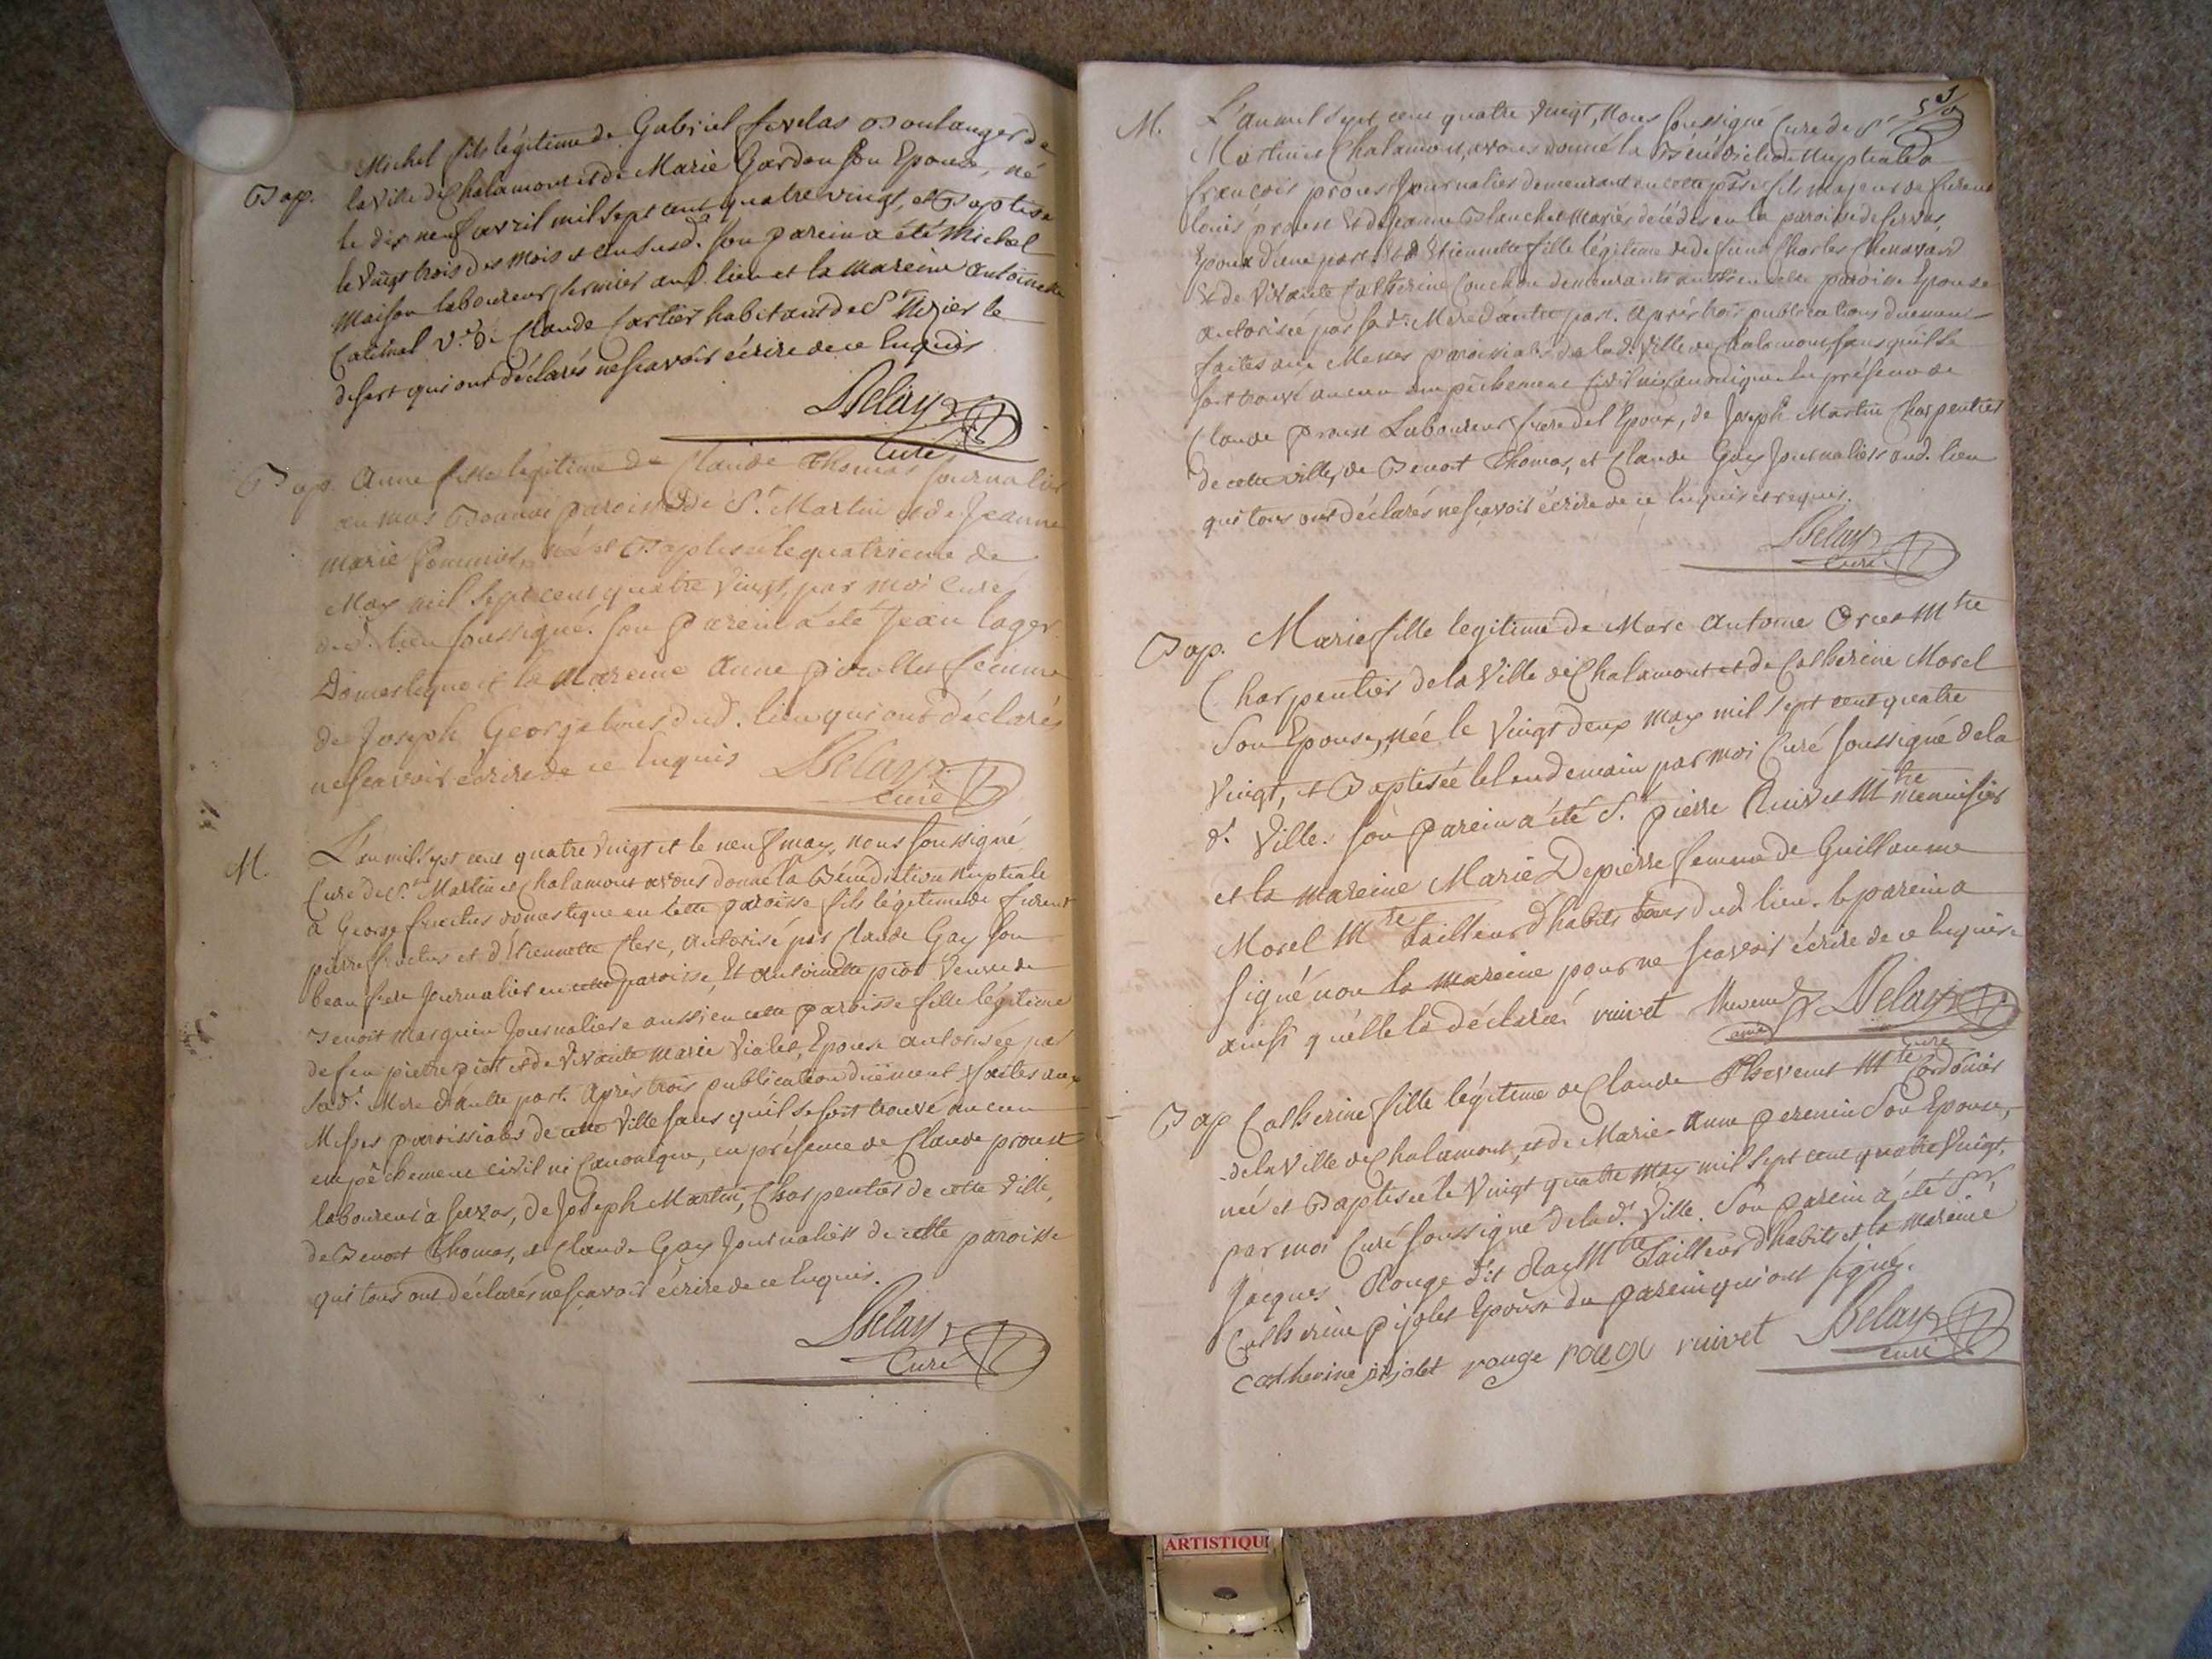 Bap. Michel fils légitime de Gabriel favelas Boulanger de
la Ville de Chalamont et de Marie Gardon son Epouse, né
le dix neuf avril mil sept cent quatre vingt, et Baptisé
le vingt trois des mois et an susd. son parein a été Michel
Maison laboureur fermier aud. lieu et la mareine antoinette
Catimel v.e de Claude Cartier habitant de St Nizier le
desert qui ont déclarés ne scavoir écrire de ce Enquis
Delay
Curé
Bap. Anne fille legitime de Claude Thomas Journalier
au mas paroisse de St. Martin et de Jeanne
marie Pommier, née et Baptisée le quatrieme de
May mil sept cent quatre vingt, par moi Curé
dud. lieu soussigné. son parein a été Jean lager
Domestique et la Mareine Anne pirollet femme
de Joseph George tous dud. lieu qui ont déclarés
ne scavoir ecrire de ce Enquis Delay
curé
M. L'an mil sept cent quatre vingt et le neuf may, nous soussigné
Curé de St. Martin et Chalamont avons donné la Bénédiction Nuptiale
à George fructus domestique en cette paroisse fils légitime de furent
pierre fructus et d'Etiennette Clerc, autorisé par Claude Gay son
beau frere Journalier en cette paroisse, Et antoinette piot veuve de
Benoit Marguin Journaliere aussi en cette paroisse fille légitime
de feu pierre piot et de vivante marie Violet, Epouse autorisée par
sad. Mere d'autre part. Après trois publication duëment faites aux
Messes paroissiales de cette Ville sans qu'il se soit trouvé aucun
empêchement civil ni Canonique, en présence de Claude proust
laboureur à servas, de Joseph Martin, Charpentier de cette ville,
de Benoit Thomas, et Claude Gay Journaliers de cette paroisse
qui tous ont déclarés ne scavoir écrire de ce Enquis.
Delay
Curé
M. L'an mil sept cent quatre vingt, Nous soussigné Curé de St
Martin et Chalamont, avons donné la Bénédiction Nuptiale à
françois proust Journalier demeurant en cette psse fils majeur de furent
louis proust Et de Jeanne Blanchet mariés décédés en la paroisse de servas,
Epoux d'une part. Et à Etiennette fille légitime de defunt Charles Chenavard
Et de Vivante Catherine Couchon demeurants aussi en cette paroisse Epouse
autorisée par sad. Mere d'autre part. Après trois publications duement
faites aux Messes paroissiales de lad. Ville de Chalamont sans qu'il se
soit trouvé aucun empêchement civil ni Canonique En présence de
Claude proust Laboureur frere de l'Epoux, de Joseph Martin Charpentier
de cette ville, de Benoit Thomas, et Claude Gay Journaliers aud. lieu
qui tous ont déclarés ne scavoir écrire de ce Enquis et requis.
Delay
Curé
Bap. Marie fille legitime de Marc Antoine Orcet Mtre
Charpentier de la Ville de Chalamont et de Catherine Morel
Son Epouse, née le vingt deux may mil sept cent quatre
vingt, et Baptisée le lendemain par moi Curé soussigné de la
d. Ville. son parein a été Sr. pierre Ruivet Mtre menuisier
et la mareine Marie Depierre femme de Guillaume
Morel Mtre tailleur d'habits tous dud. lieu. le parein a
signé non la mareine pour ne scavoir écrire de ce Enquise
ainsi qu'elle la déclaré ruivet Delay
curé
Bap Catherine fille légitime de Claude Thevenet Mtre Cordonier
de la ville de Chalamont, et de Marie Anne peremin Son Epouse,
née et Baptisée le Vingt quatre may mil sept cent quatre vingt,
par moi Curé soussigné de la d. Ville. Son parein a été Sr.
Jacques Rouge dit Mtre tailleur d'habits et la mareine
Catherine pijolet Epouse du parein qui ont signé.
catherine pijolet rouge ruivet Delay
curé
ARTISTIQU